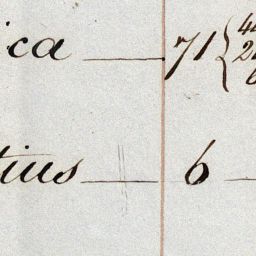 ica — 71 {
tius — 6 —